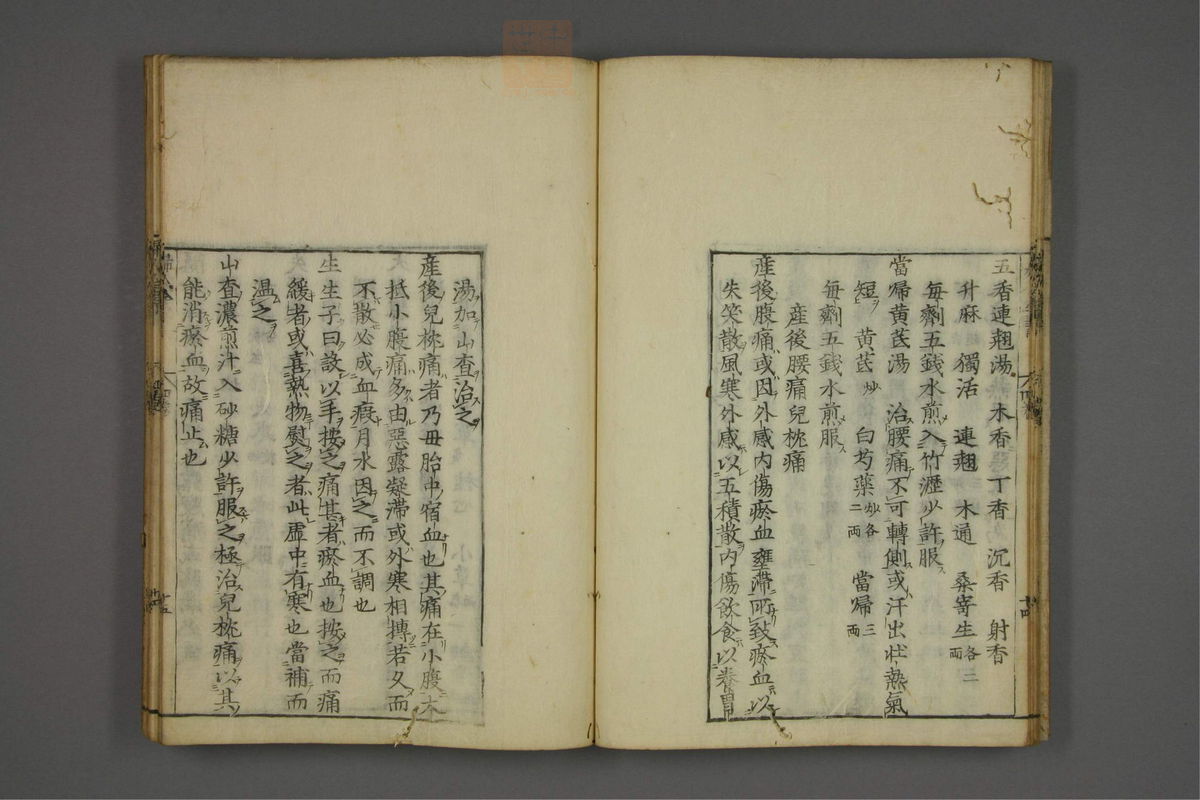 五香連翹湯 木香 丁香 沉香 射香
升麻 獨活 連翹 木通 桑寄生各二兩
每劑五錢水煎入竹瀝少許服
當帰黄芪湯 治腰痛不可轉側或汗出壮熱氣
短 黄芪炒 白芍藥炒各二兩 當帰三兩
每劑五錢水煎服
産後腰痛兒枕痛
産後腹痛或因外感内傷瘀血壅滞所致瘀血以
失笑散風寒外感以五積散内傷飲食以養胃
湯加山査治之
産後兒枕痛者乃毋胎中宿血也其痛在小腹大
抵小腹痛多由惡露凝滞或外寒相搏若久而
不散必成血瘕月水因之而不調也
生生子曰診以手按之痛甚者瘀血也按之而痛
緩者或喜熱物熨之者此虚中有寒也當補而
温之
山査濃煎汁入砂糖少許服之極治兒枕痛以其
能消瘀血故痛止也